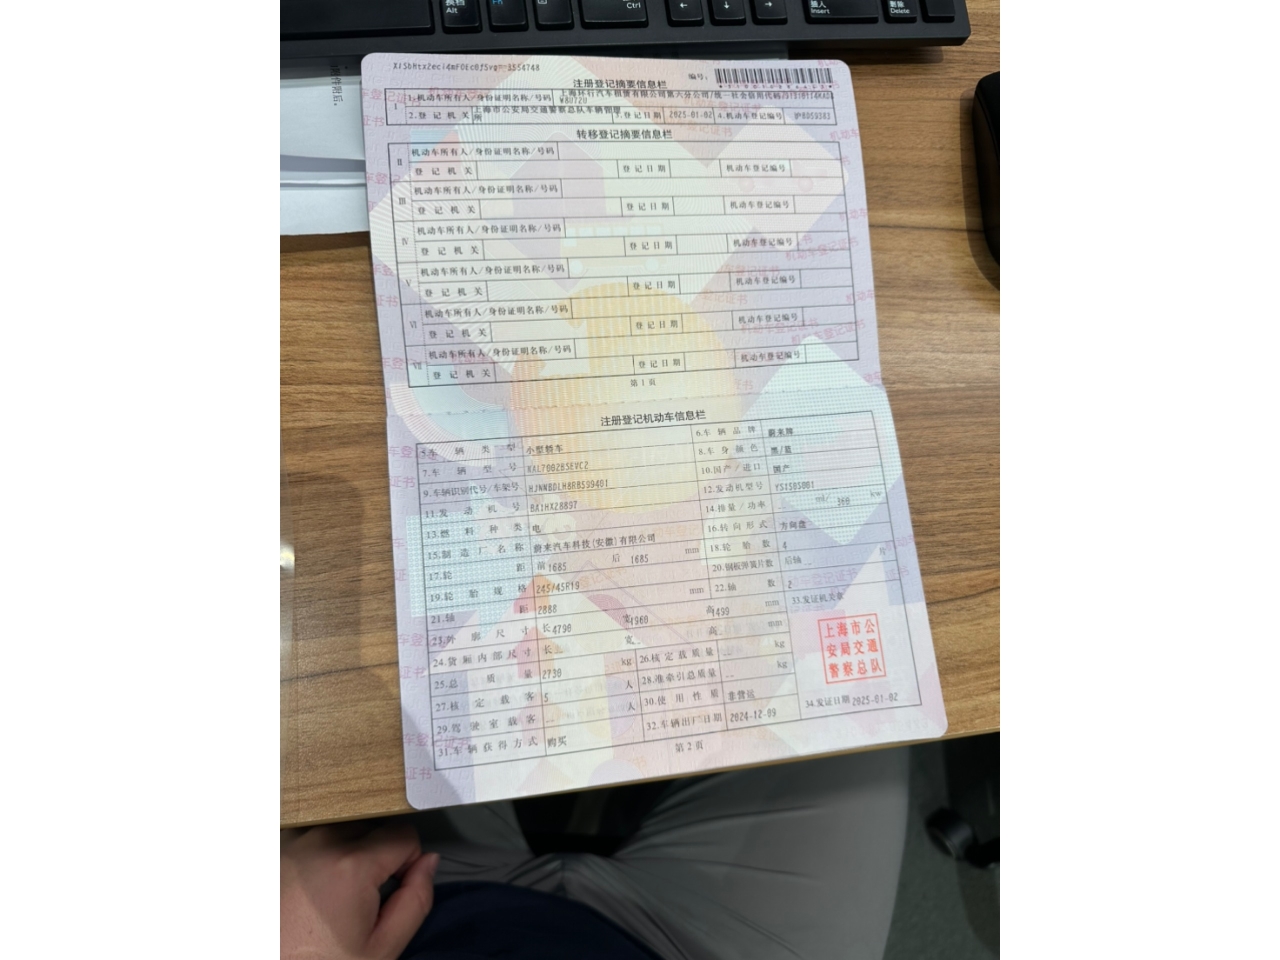 换档
Alt
Fn
Ctrl
←
↓
→
插入
Insert
删除
Delete
附件附后。
编号:
注册登记摘要信息栏
I
1.机动车所有人/身份证明名称/号码
上海环行汽车租赁有限公司第六分公司/统一社会信用代码
2.登记机关
上海市公安局交通警察总队车辆管理所
3.登记日期
2025-01-02
4.机动车登记编号
转移登记摘要信息栏
II
机动车所有人/身份证明名称/号码
登记机关
登记日期
机动车登记编号
III
机动车所有人/身份证明名称/号码
登记机关
登记日期
机动车登记编号
IV
机动车所有人/身份证明名称/号码
登记机关
登记日期
机动车登记编号
V
机动车所有人/身份证明名称/号码
登记机关
登记日期
机动车登记编号
VI
机动车所有人/身份证明名称/号码
登记机关
登记日期
机动车登记编号
VII
机动车所有人/身份证明名称/号码
登记机关
登记日期
机动车登记编号
第1页
注册登记机动车信息栏
5.车辆类型 小型轿车 6.车辆品牌 蔚来牌
7.车辆型号 8.车身颜色 黑/蓝
9.车辆识别代号/车架号 10.国产/进口 国产
11.发动机号 12.发动机型号
13.燃料种类 电 14.排量/功率 ml/ kw
15.制造厂名称 蔚来汽车科技(安徽)有限公司 16.转向形式 方向盘
17.轮距 前1685 后 1685 mm 18.轮胎数 4
19.轮胎规格 245/45R19 20.钢板弹簧片数 后轴 片
21.轴距 2888 mm 22.轴数 2
23.外廓尺寸 长4790 宽1960 高1499 mm 33.发证机关章
24.货厢内部尺寸 长 宽 高 mm
25.总质量 2730 kg 26.核定载质量 kg
27.核定载客 5 人 28.准牵引总质量 kg
29.驾驶室载客 人 30.使用性质 非营运
31.车辆获得方式 购买 32.车辆出厂日期 2024-12-09 34.发证日期 2025-01-02
上海市公
安局交通
警察总队
第2页